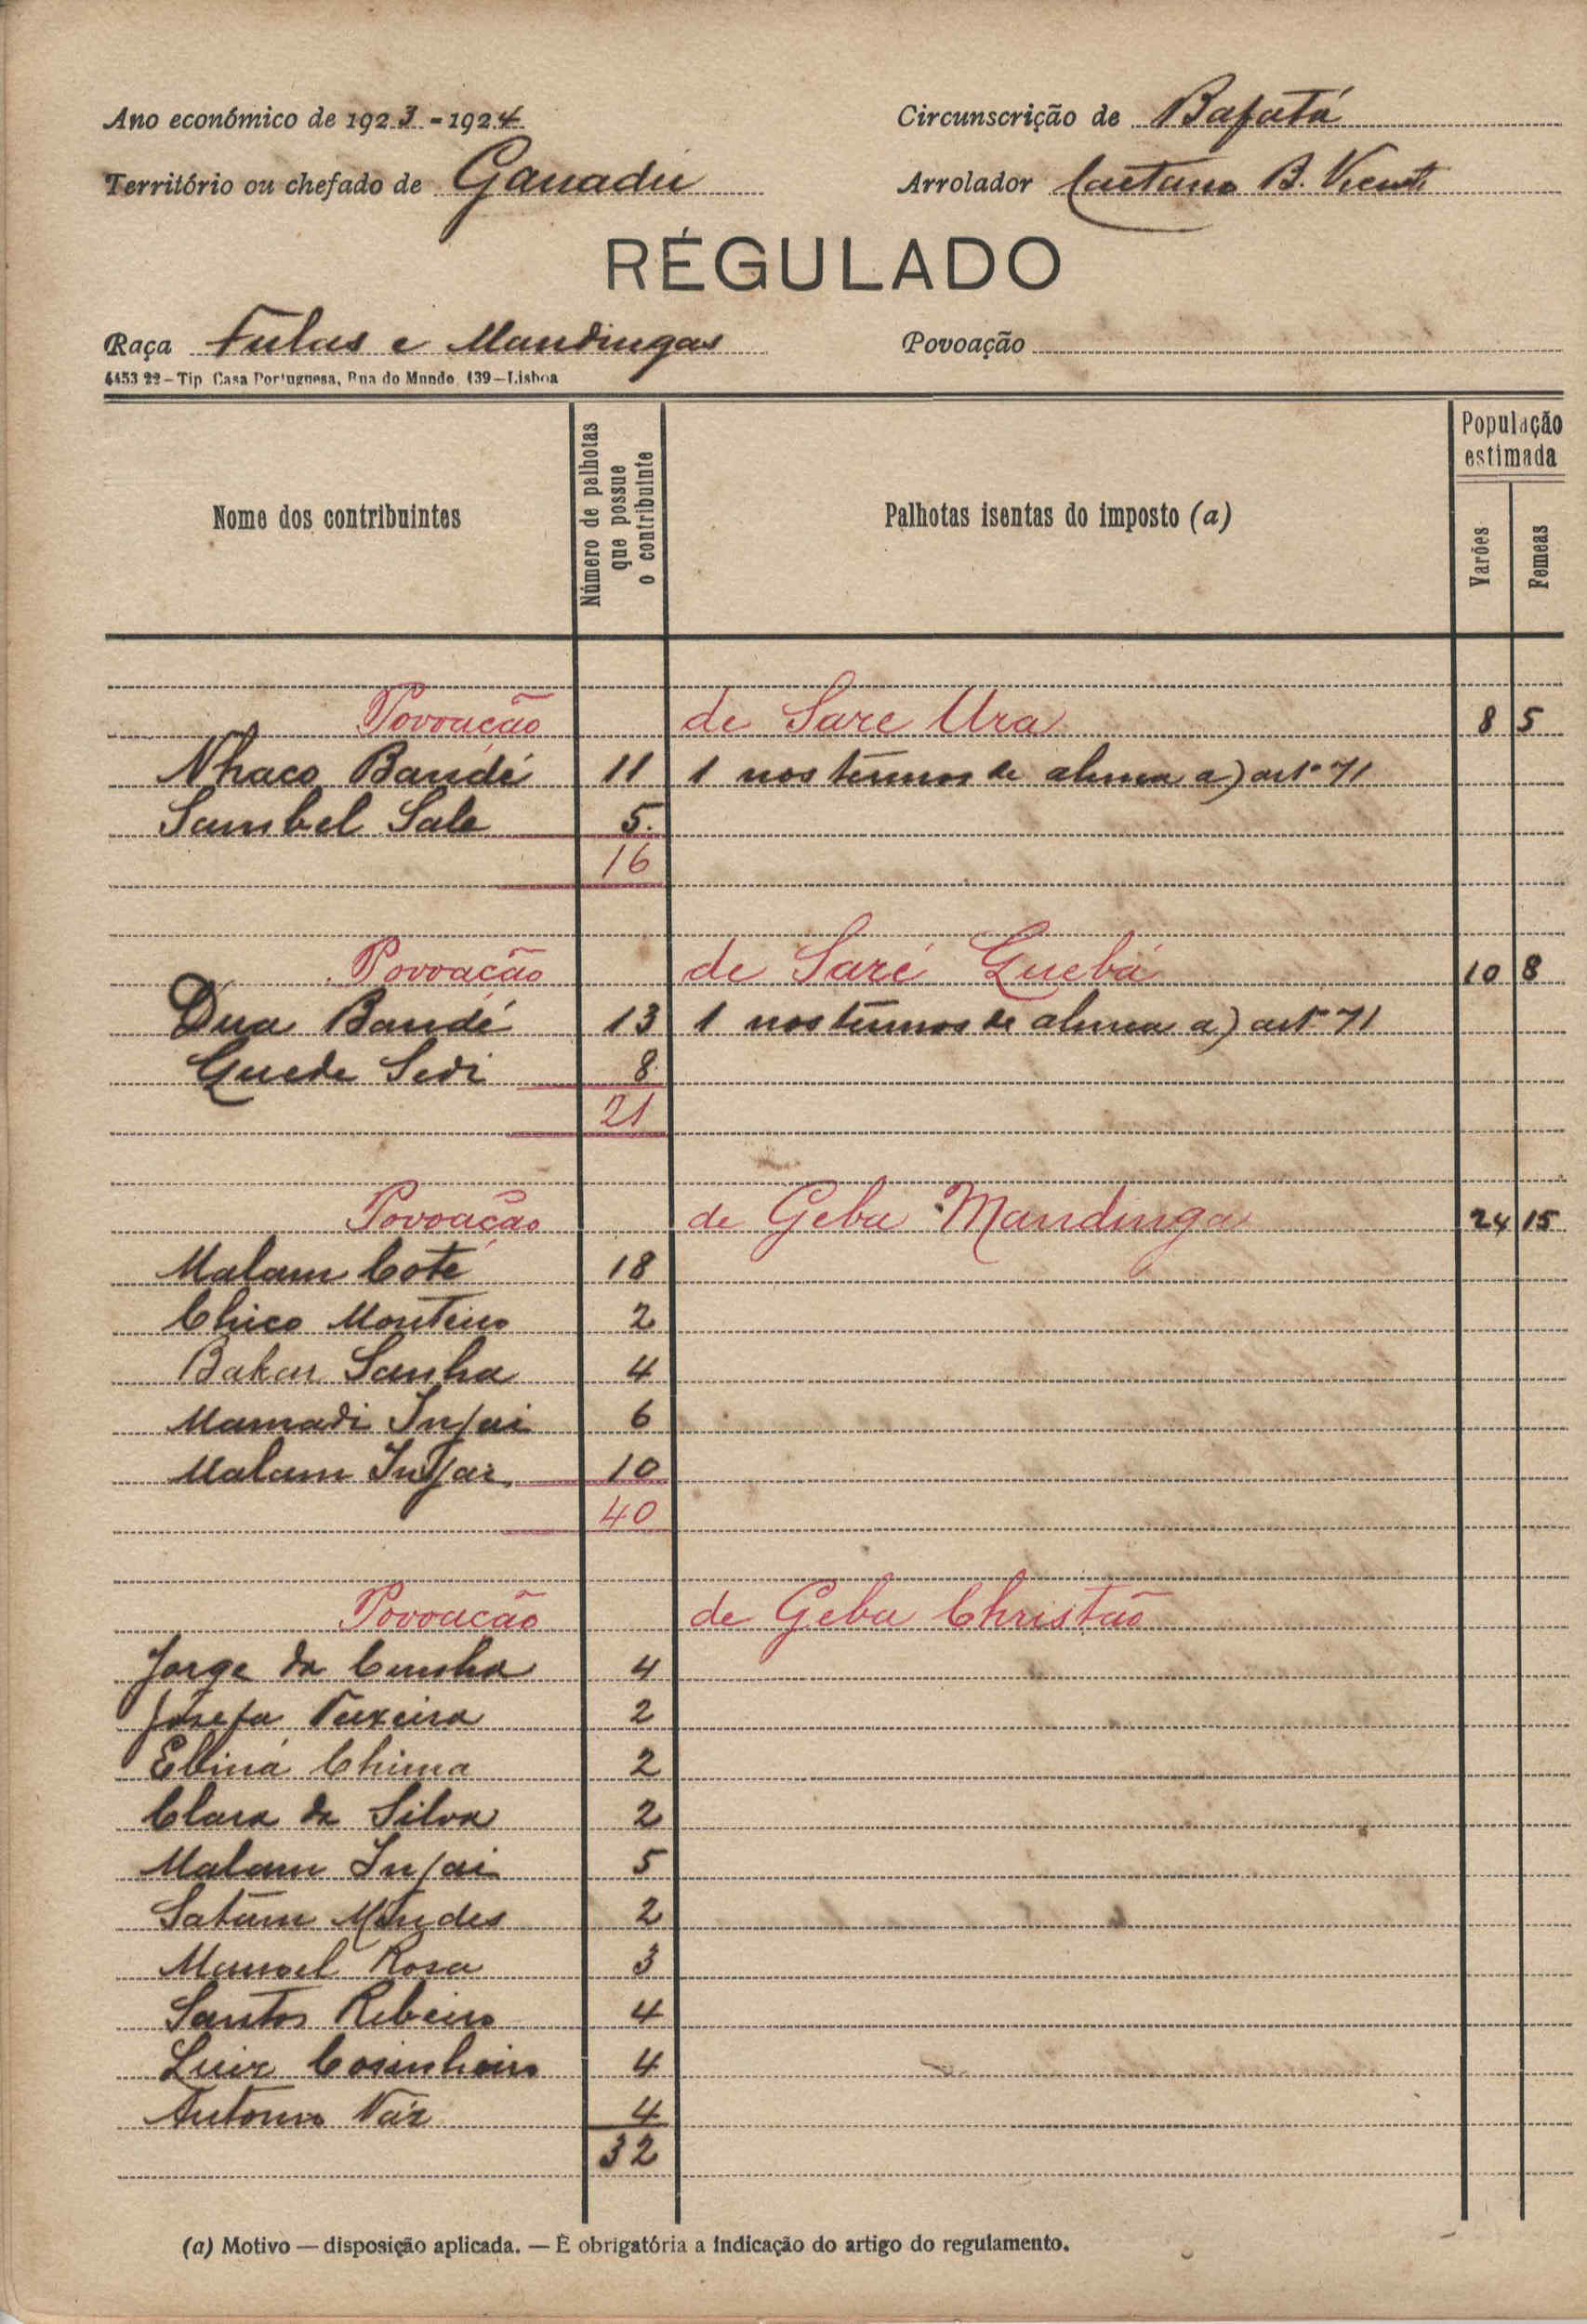 Ano económico de 1923-1924
Circunscrição de Bafatá
Território ou chefado de Ganadu
Arrolador Caetano B. Vicente
RÉGULADO
Raça Fulas e Mandingas
Povoação
4453 22-Tip Casa Portuguesa, Rua do Mundo, 139-Lisboa
Nome dos contribuintes
Número de palhotas que possue o contribuinte
Palhotas isentas do imposto (a)
População estimada
Varões
Femeas
Povoação de Sare Ura 8 5
Nhaco Bandé 11 1 nos termos de alinea a) artº 71
Sambel Sale 5
16
Povoação de Saré Guebá 10 8
Dua Bandé 13 1 nos termos de alinea a) artº 71
Guede Sedi 8
21
Povoação de Geba Mandinga 24 15
Malam Coté 18
Chico Monteiro 2
Bakar Sanha 4
Mamadi Injai 6
Malam Injai 10
40
Povoação de Geba Christão
Jorge da Cunha 4
Josefa Teixeira 2
Chima 2
Clara da Silva 2
Malam Injai 5
Satum Mendes 2
Manoel Rosa 3
Santos Ribeiro 4
Luiz Cosinheiro 4
Antonio Váz 4
32
(a) Motivo — disposição aplicada. — É obrigatória a indicação do artigo do regulamento.